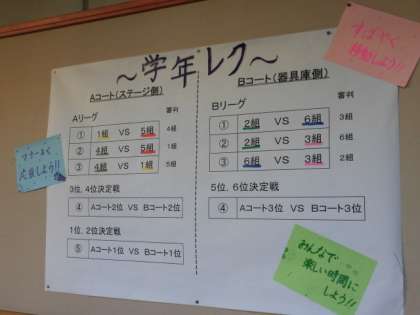 ～学年レク～
すばやく
移動しよう!!
Aコート(ステージ側)
Aリーグ
審判
① 1組 VS 5組 4組
② 4組 VS 5組 1組
③ 4組 VS 1組 5組
3位, 4位決定戦
④ Aコート2位 VS Bコート2位
1位, 2位決定戦
⑤ Aコート1位 VS Bコート1位
Bコート(器具庫側)
Bリーグ
審判
① 2組 VS 6組 3組
② 2組 VS 3組 6組
③ 6組 VS 3組 2組
5位, 6位決定戦
④ Aコート3位 VS Bコート3位
マナーよく
応援しよう!!
みんなで
楽しい時間に
しよう!!